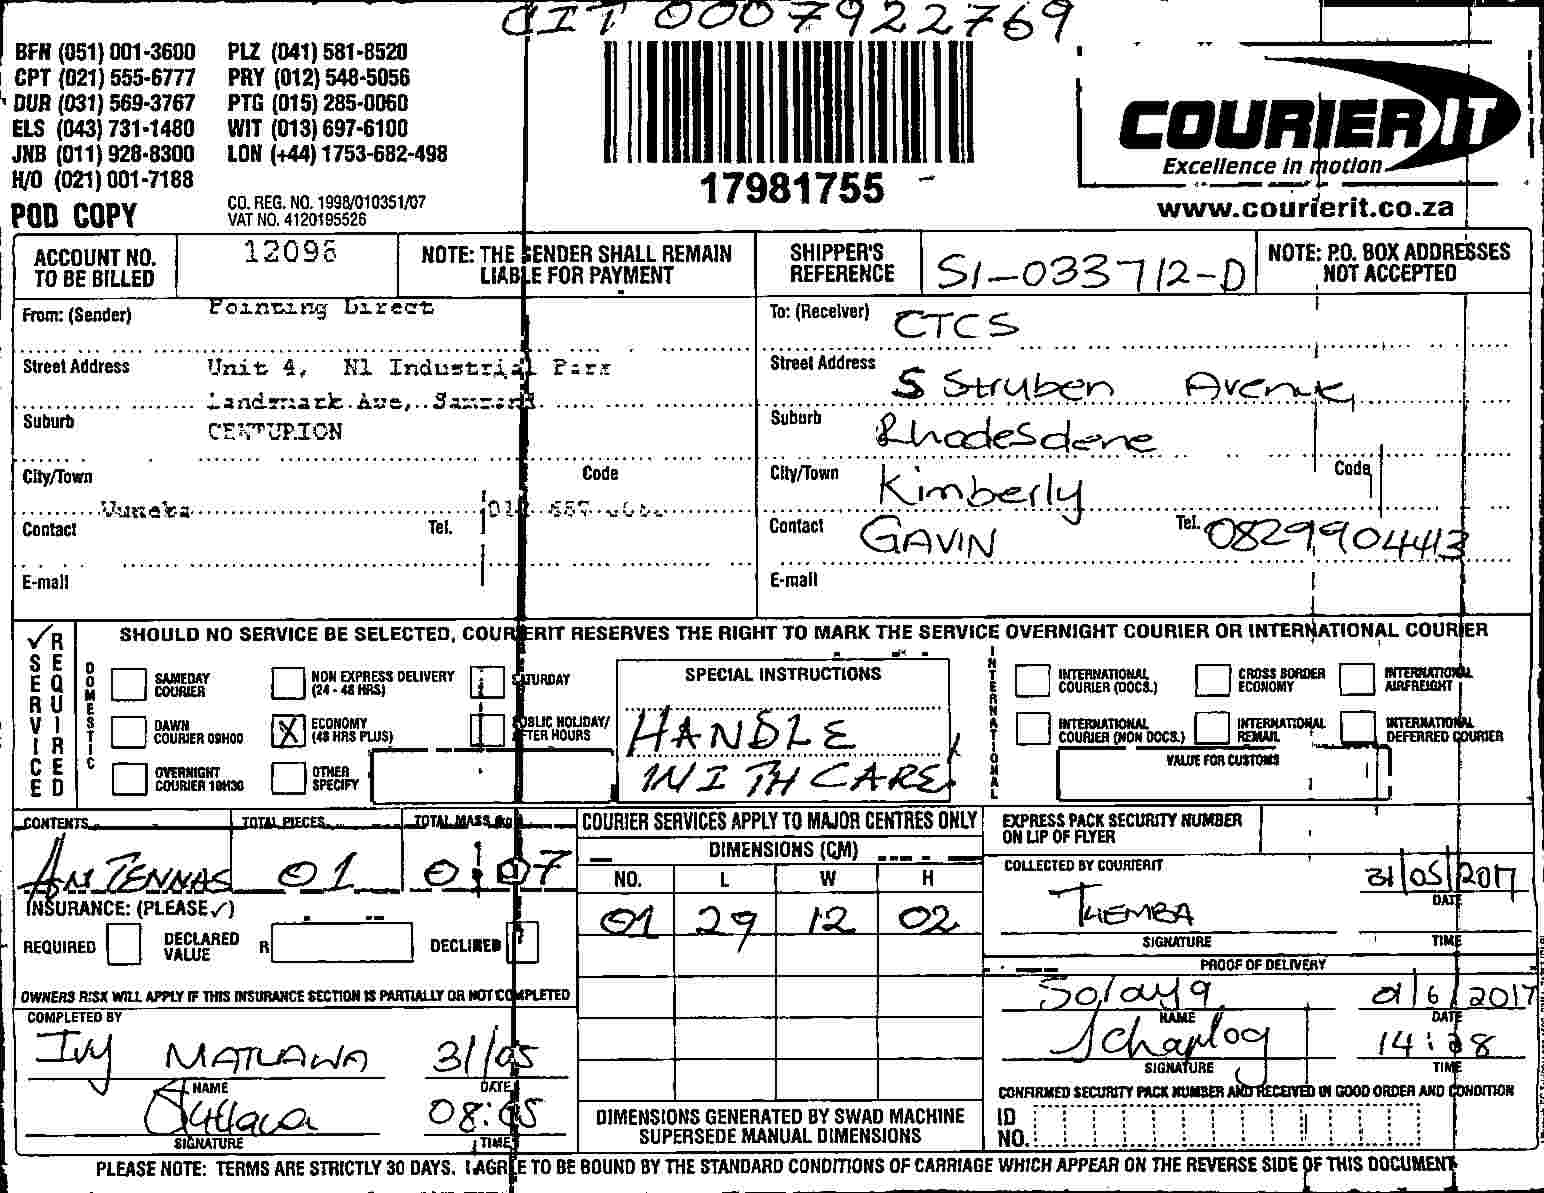 CIT 0007922769
BFN (051) 001-3600 PLZ (041) 581-8520
CPT (021) 555-6777 PRY (012) 548-5056
DUR (031) 569-3767 PTG (015) 285-0060
ELS (043) 731-1480 WIT (013) 697-6100
JNB (011) 928-8300 LON (+44) 1753-682-498
H/O (021) 001-7188
POD COPY
CO. REG. NO. 1998/010351/07
VAT NO. 4120195526
17981755
COURIER IT
Excellence in motion
www.courierit.co.za
ACCOUNT NO. TO BE BILLED 12098
NOTE: THE SENDER SHALL REMAIN LIABLE FOR PAYMENT
SHIPPER'S REFERENCE SI-033712-D
NOTE: P.O. BOX ADDRESSES NOT ACCEPTED
From: (Sender) Pointing Direct
Street Address Unit 4, N1 Industrial Park
Landmark Ave,
Suburb CENTURION
City/Town Code
Contact Tel.
E-mail
To: (Receiver) CTCS
Street Address 5 Struben Avenue
Suburb Rhodesdene
City/Town Kimberly Code
Contact GAVIN Tel. 0829904413
E-mail
✓ SERVICE REQUIRED
SHOULD NO SERVICE BE SELECTED, COURIERIT RESERVES THE RIGHT TO MARK THE SERVICE OVERNIGHT COURIER OR INTERNATIONAL COURIER
DOMESTIC
SAMEDAY COURIER
NON EXPRESS DELIVERY (24 - 48 HRS)
SATURDAY
DAWN COURIER 09H00
X ECONOMY (48 HRS PLUS)
PUBLIC HOLIDAY/ AFTER HOURS
OVERNIGHT COURIER 10H30
OTHER SPECIFY
SPECIAL INSTRUCTIONS
HANDLE
WITH CARE
INTERNATIONAL
INTERNATIONAL COURIER (DOCS.)
CROSS BORDER ECONOMY
INTERNATIONAL AIRFREIGHT
INTERNATIONAL COURIER (NON DOCS.)
INTERNATIONAL REMAIL
INTERNATIONAL DEFERRED COURIER
VALUE FOR CUSTOMS
CONTENTS TOTAL PIECES TOTAL MASS
ANTENNAS 01 0.07
INSURANCE: (PLEASE ✓)
REQUIRED DECLARED VALUE R DECLINED
OWNERS RISK WILL APPLY IF THIS INSURANCE SECTION IS PARTIALLY OR NOT COMPLETED
COMPLETED BY
Ivy MATLAWA 31/05
NAME DATE
08:
SIGNATURE TIME
COURIER SERVICES APPLY TO MAJOR CENTRES ONLY
DIMENSIONS (CM)
NO. L W H
01 29 12 02
DIMENSIONS GENERATED BY SWAD MACHINE
SUPERSEDE MANUAL DIMENSIONS
EXPRESS PACK SECURITY NUMBER ON LIP OF FLYER
COLLECTED BY COURIERIT
31/05/2017
DATE
THEMBA
SIGNATURE TIME
PROOF OF DELIVERY
01/6/2017
NAME DATE
14:28
SIGNATURE TIME
CONFIRMED SECURITY PACK NUMBER AND RECEIVED IN GOOD ORDER AND CONDITION
ID NO.
PLEASE NOTE: TERMS ARE STRICTLY 30 DAYS. I AGREE TO BE BOUND BY THE STANDARD CONDITIONS OF CARRIAGE WHICH APPEAR ON THE REVERSE SIDE OF THIS DOCUMENT